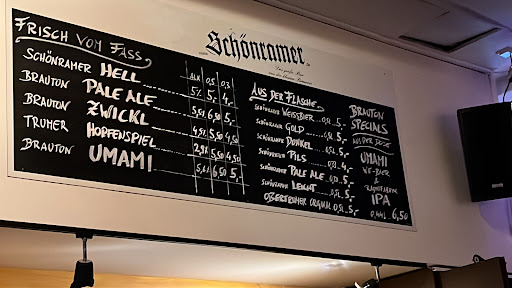 Schönramer
FRISCH VOM FASS
ALK 0,5 0,3
SCHÖNRAMER HELL 5% 5,- 4,-
BRAUTON PALE ALE
BRAUTON ZWICKL
TRUMER HOPFENSPIEL
BRAUTON UMAMI 5,6% 6,50 5,-
AUS DER FLASCHE
SCHÖNRAMER WEISSBIER 0,5L 5,-
SCHÖNRAMER GOLD 0,5L 5,-
SCHÖNRAMER DUNKEL 0,5L 5,-
SCHÖNRAMER PILS 0,5L 5,-
SCHÖNRAMER PALE ALE 5,-
SCHÖNRAMER LEICHT 0,5L 5,-
OBERTRUMER ORIGINAL 0,5L 5,-
BRAUTON
SPECIALS
AUS DER DOSE
UMAMI
&
IPA
0,44L 6,50